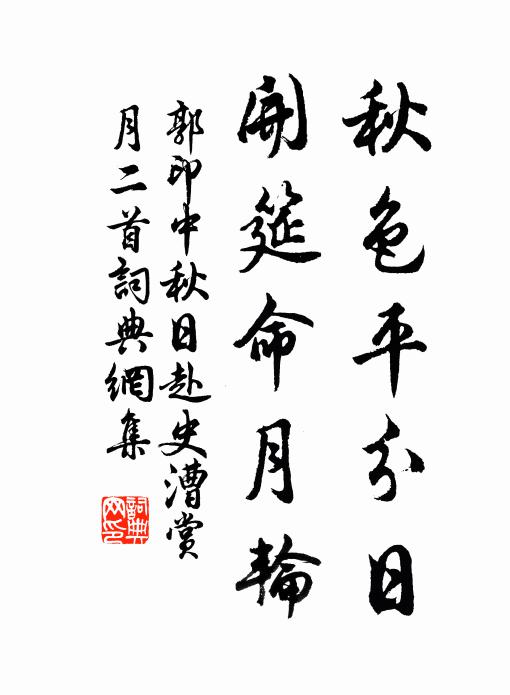 秋色平分日
開筵命月輪
郭印中秋日赴史漕賞
月二首詞典網集
詞典
网印